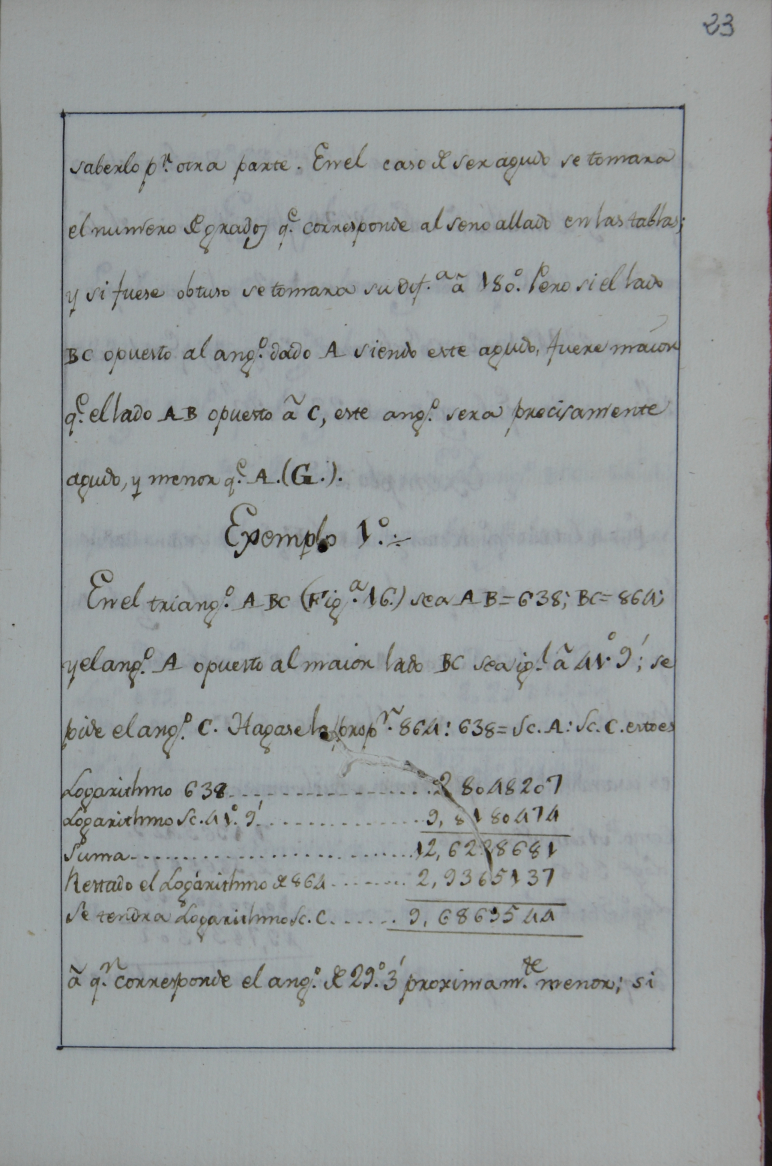 23
saberlo p.r otra parte. En el caso de ser agudo se tomara
el numero de grados q.e corresponde al seno allado en las tablas;
y si fuese obtuso se tomara su dif.a â 180.° Pero si el lado
BC opuesto al ang.o dado A siendo este agudo, fuere maior
q.e el lado AB opuesto â C, este ang.o sera precisamente
agudo, y menor q.e A.(G.).
Exemplo 1.°
En el triang.o ABC (Fig.a 16.) sea AB=638; BC=864;
y el ang.o A opuesto al maior lado BC sea ig.l â 41.° 9'; se
pide el ang.o C. Hagase la prop.n 864: 638= Sc. A: Sc. C. esto es
Logarithmo 638 .................. 2 8048207
Logarithmo Sc. 41.° 9' .................. 9, 8180474
Suma .................. 12, 6228681
Restado el Logarithmo de 864 ........ 2, 9365137
Se tendra Logarithmo Sc. C. ...... 9, 6863544
â q.n corresponde el ang.o de 29.° 3' proximam.te menor; si